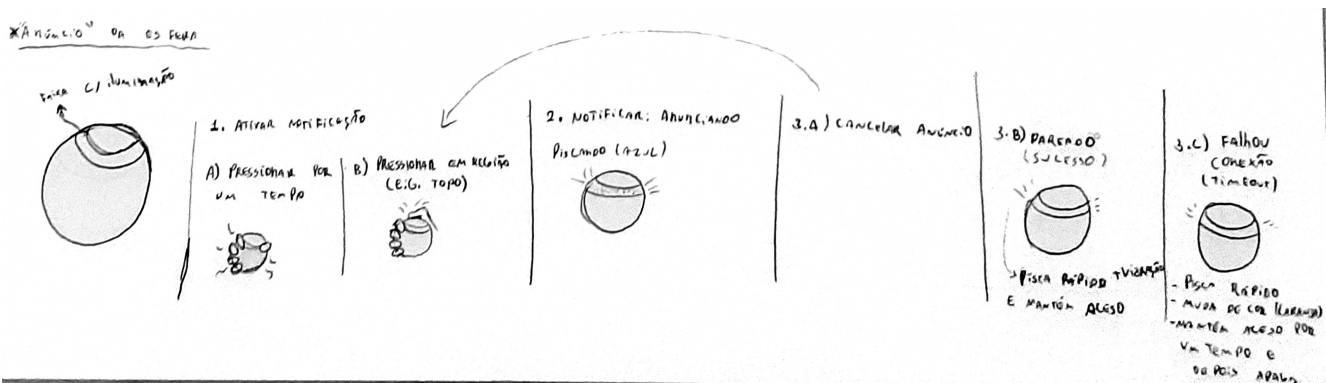 *"Anúncio" DA ESFERA
FAIXA C/ ILUMINAÇÃO
1. ATIVAR NOTIFICAÇÃO
A) PRESSIONAR POR
UM TEMPO
B) PRESSIONAR EM REGIÃO
(E.G. TOPO)
2. NOTIFICAR: ANUNCIANDO
PISCANDO (AZUL)
3.A) CANCELAR ANÚNCIO
3.B) PAREADO
(SUCESSO)
PISCA RÁPIDO + VIBRAÇÃO
E MANTÉM ACESO
3.C) FALHOU
CONEXÃO
(TIMEOUT)
- PISCA RÁPIDO
- MUDA DE COR (LARANJA)
- MANTÉM ACESO POR
UM TEMPO E
DEPOIS APAGA